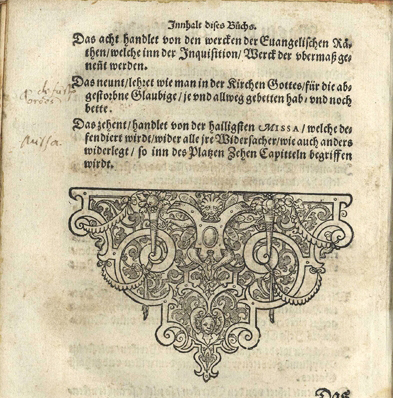 Innhalt dises Büchs.
Das acht handlet von den wercken der Euangelischen Rä-
then/welche inn der Inquisition/ Werck der vbermaß ge-
neñt werden.
Das neunt/lehret wie man in der Kirchen Gottes/für die ab-
gestorbne Glaubige/ je vnd allweg gebetten hab/ vnd noch
bette.
Das zehent/handlet von der halligsten MISSA/ welche de-
fendiert wirdt/wider alle jre Widersacher/wie auch anders
widerlegt/ so inn des Platzen Zehen Capitteln begriffen
wirdt.
Missa.
Das